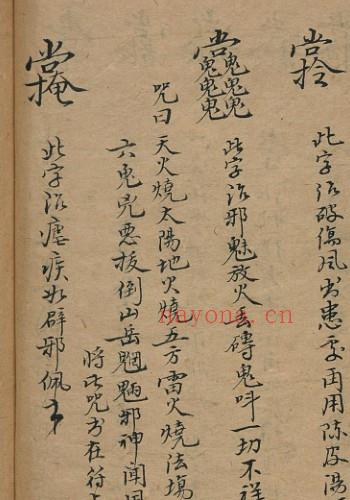 此字治破傷風書患處再用陈皮湯
此字治邪魅放火去磚鬼叫一切不祥
咒曰天火燒太陽地火燒五方雷火燒法場
六鬼兇惡拔倒山岳魍魎邪神聞
將此咒书在符上
此字治瘧疾如辟邪佩
nayong.cn